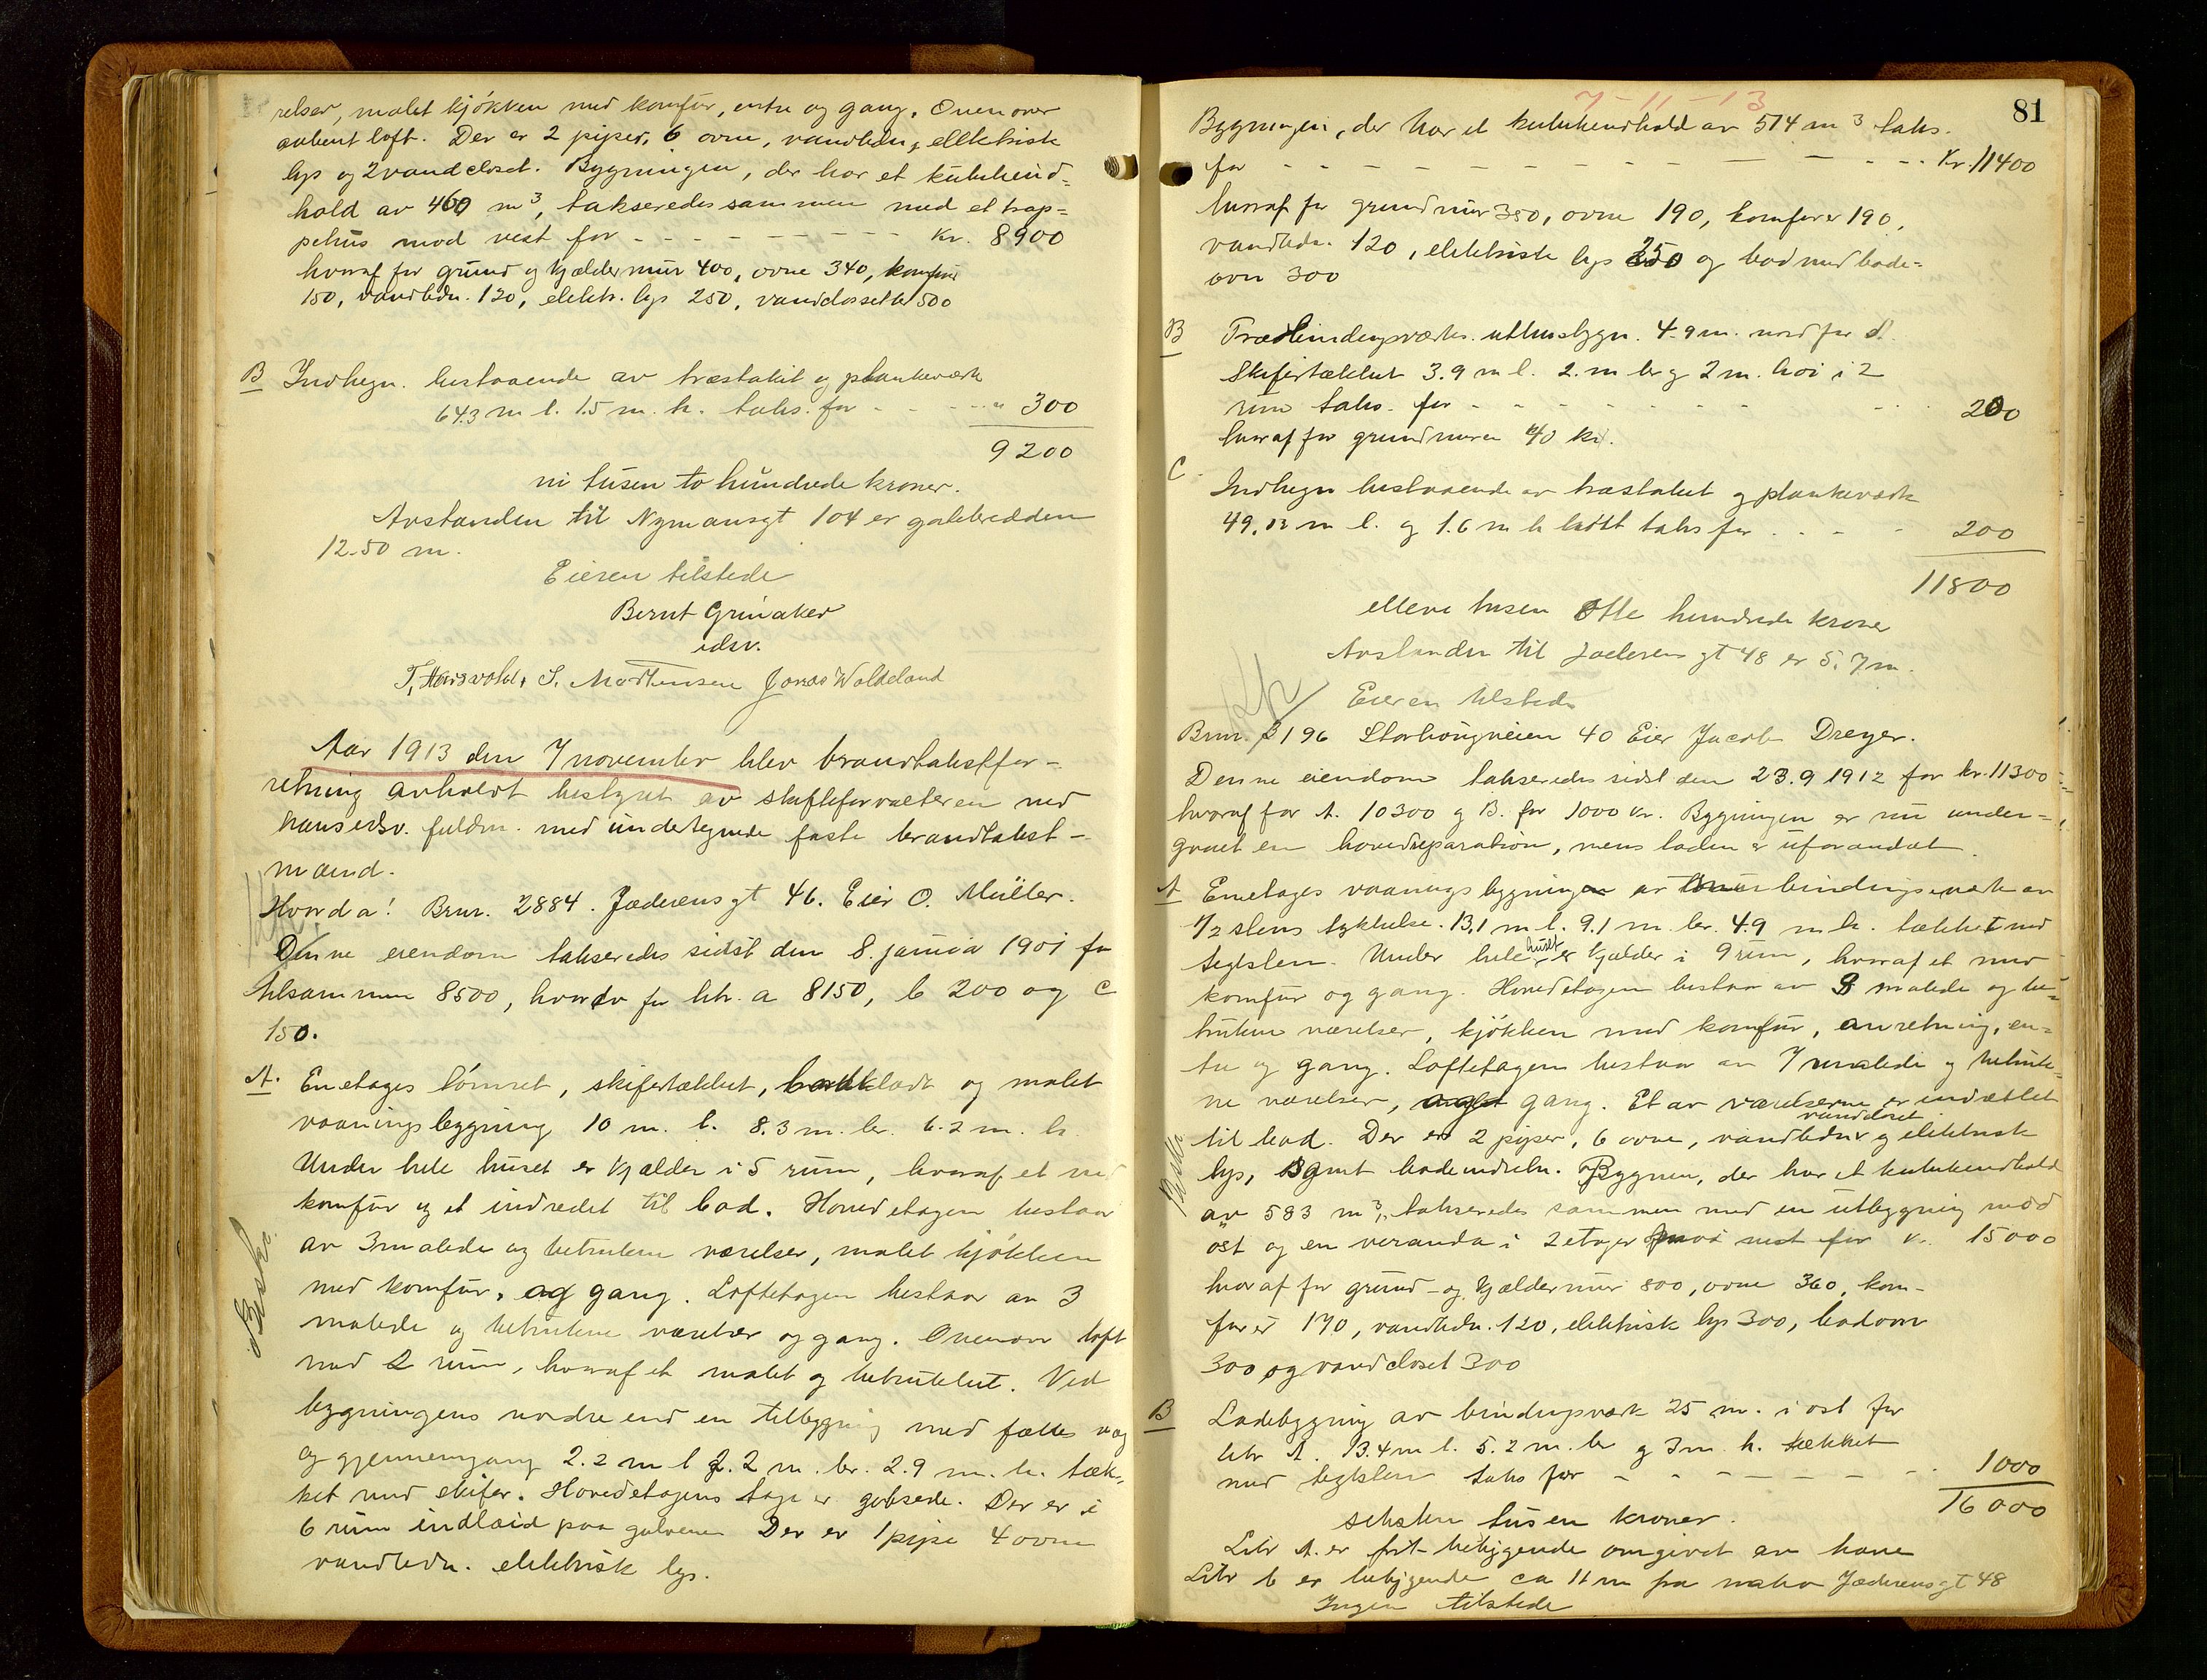 relser, malet kjökken med komfur, entre og gang. Ovenover
aabent loft. Der er 2 piper, 6 ovne, vandledn, ellektrisk
lys og 2 vandcloset. Bygningen, der har et kubikind-
hold av 460 m³, takseredes sammen med et trap-
pehus mod vest for - - - - - - - - - Kr. 8900
hvoraf for grund og kjældermur 400, ovne 340, komfur
150, vandledn. 120, elektr. lys 250, vandclossetter 500
B Indhegn. bestaaende av træstakit og plankeværk
64.3 m l. 1.5 m. h. taks. for - - - - " 300
9200
ni tusen to hundrede kroner.
Avstanden til Nymansgt 104 er gatebredden
12.50 m.
Eieren tilstede
Bernt Grinaker
edsv.
T. Hausvold, S. Mortensen Jonas Woldeland
Aar 1913 den 7 november blev brandtakstfor-
retning avholdt bestyret av skifteforvalteren ved
hans edsv. fuldm. med undertegnede faste brandtakst-
mænd.
Hvorda! Brnr. 2884. Jæderensgt 46. Eier O. Müller.
Denne eiendom takseredes sidst den 8. januar 1901 for
tilsammen 8500, hvorav for litr. a 8150, b 200 og c
150.
A. Enetages tömret, skifertækket, bordklædt og malet
vaaningsbygning 10 m. l. 8.3 m. br. 6.2 m. h.
Under hele huset er kjælder i 5 rum, hvoraf et med
komfur og et indredet til bad. Hovedetagen bestaar
av 3 malede og betrukne værelser, malet kjökken
med komfur, og gang. Loftetagen bestaar av 3
malede og betrukne værelser og gang. Ovenover loft
med 2 rum, hvoraf et malet og betrukket. Ved
bygningens nordre end en tilbygning med fælles væg
og gjennemgang 2.2 m l 2.2 m. br. 2.9 m. h. tæk-
ket med skifer. Hovedetagens tage er gibsede. Der er i
6 rum indlaid paa gulvene Der er 1 pipe 4 ovne
vandledn. elektrisk lys.
Besk.
81
7-11-13
Bygningen, der har et kubikindhold av 514 m³ taks.
for - - - - - - - - - - - - Kr. 11400
hvoraf for grundmur 350, ovne 190, komfurer 190,
vandledn. 120, elektriske lys 250 og bad med bade-
ovn 300
B Træbindingsværks. uthusbygn. 4.9 m. nord for A.
Skifertækket 3.9 m l. 2. m br og 2 m. høi i 2
rum taks. for - - - - - - - - 200
hvoraf for grundmuren 40 kr.
C. Indhegn bestaaende av træstakit og plankeværk
49.02 m l. og 1.6 m h taks for . . - - 200
11800
elleve tusen otte hundrede kroner
Avstanden til Jæderensgt 48 er 5.7 m.
Eieren tilstede
Brnr. 3196 Storhougveien 40 Eier Jacob Dreyer.
Denne eiendom takseredes sidst den 23.9 1912 for kr. 11300
hvoraf for A. 10300 og B. for 1000 kr. Bygningen er nu under-
gaaet en hovedreparation, mens laden er uforandret.
A Enetages vaaningsbygning av murbindingsværk av
1/2 stens tykkelse. 13,1 m l. 9.1 m. br. 4.9 m h. tækket med
teglsten. Under hele huset er kjælder i 9 rum, hvoraf et med
komfur og gang. Hovedetagen bestaar av 8 malede og be-
trukne værelser, kjökken med komfur, anretning, en-
tre og gang. Loftetagen bestaar av 7 malede og betruk-
ne værelser, gang. Et av værelserne er indrettet
til bad. Der er 2 piper, 6 ovne, vandledn, vandcloset og elektrisk
lys, samt badeindretn. Bygnen, der har et kubikindhold
av 583 m³, takseredes sammen med en utbygning mod
öst og en veranda i 2 etager mod vest for kr. 15000
hvoraf for grund- og kjældermur 800, ovne 360, kom-
furer 190, vandledn. 120, elektrisk lys 300, badeovn
300 og vandcloset 300
Besk.
B Ladebygning av bindingsværk 25 m. i ost for
litr A. 13.4 m l. 5.2 m. br og 3 m. h. tækket
med teglsten taks for - - - - - - - - 1000
16000
seksten tusen kroner.
Litr A. er frit beliggende omgivet av have
Litr b er beliggende ca 11 m fra Jæderensgt 48
Ingen tilstede